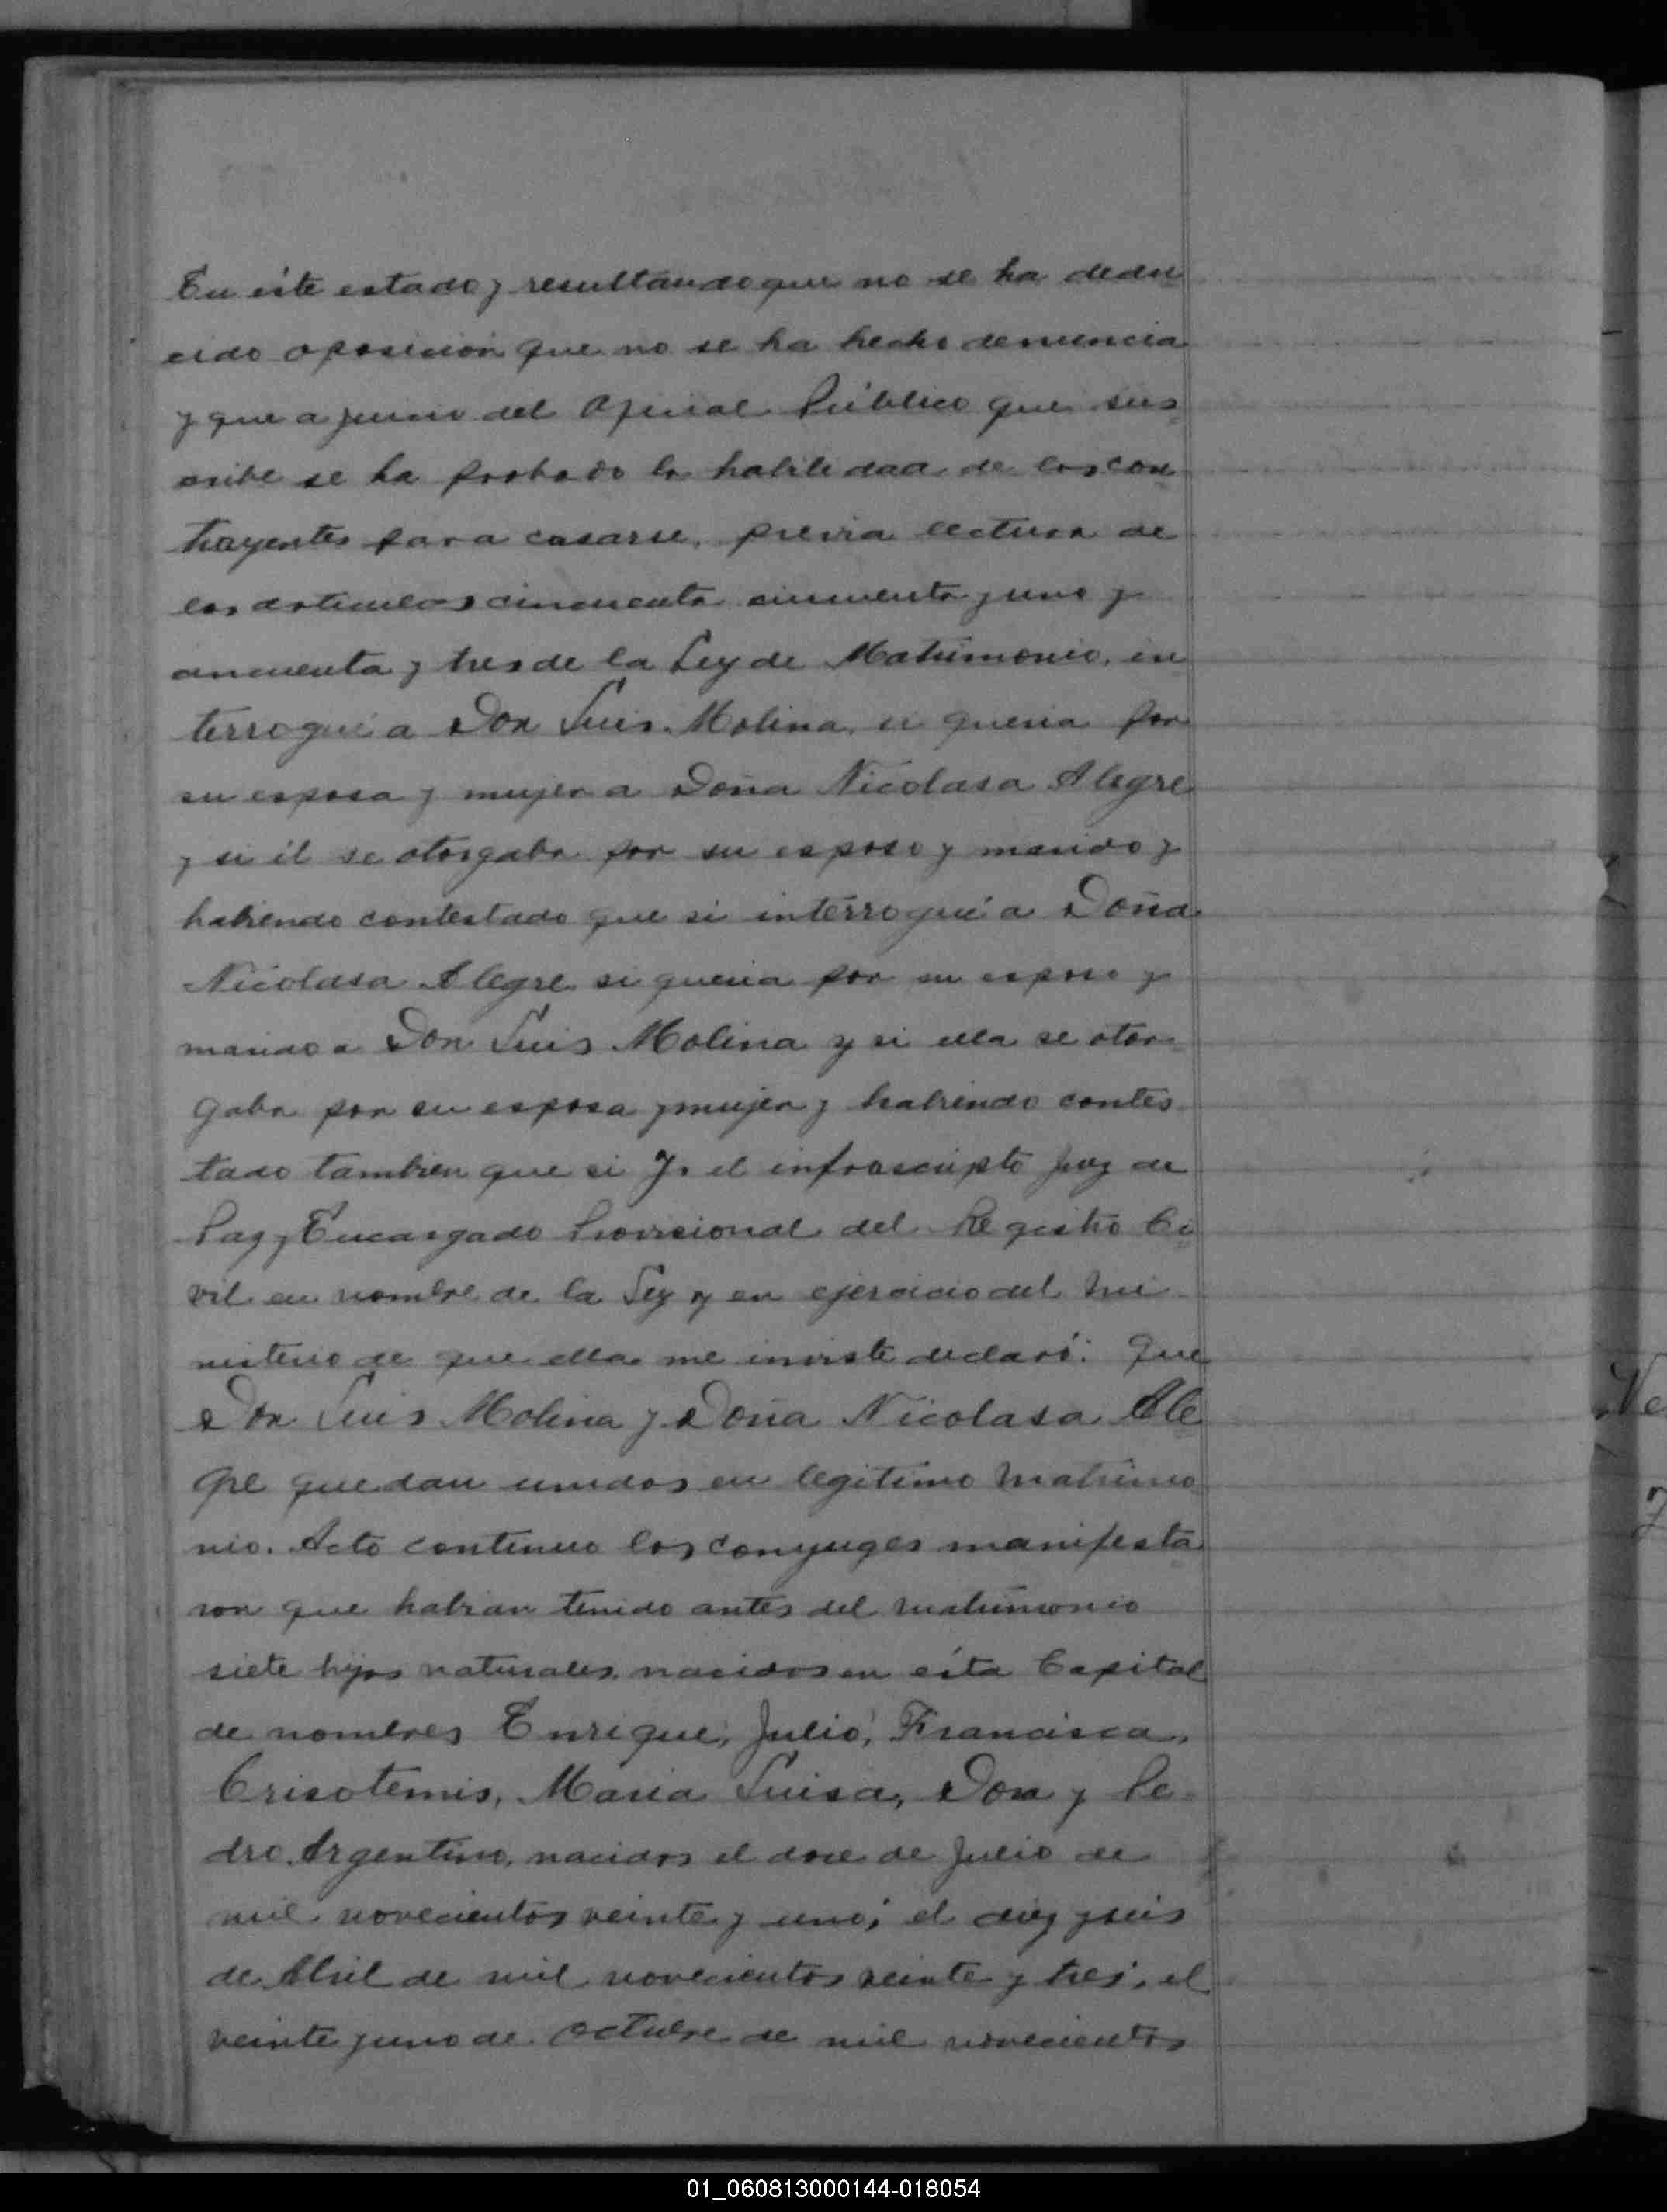 En éste estado y resultando que no se ha dedu
cido oposición que no se ha hecho denuncia
y que a juicio del Oficial Público que sus
cribe se ha probado la habilidad de los con
trayentes para casarse, previa lectura de
los artículos cincuenta cincuenta y uno y
cincuenta y tres de la Ley de Matrimonio, in
terrogué a Don Luis Molina, si quería por
su esposa y mujer a Doña Nicolasa Alegre
y si él se otorgaba por su esposo y marido y
habiendo contestado que si interrogué a Doña
Nicolasa Alegre si quería por su esposo y
marido a Don Luis Molina y si ella se otor
gaba por su esposa y mujer y habiendo contes
tado tambien que si Yo el infrascripto Juez de
Paz y Encargado Provisional del Registro Ci
vil en nombre de la Ley y en ejercicio del mi
nisterio de que ella me inviste declaro: Que
Don Luis Molina y Doña Nicolasa Ale
gre quedan unidos en legitimo matrimo
nio. Acto continuo los conyuges manifesta
ron que habian tenido antes del matrimonio
siete hijos naturales nacidos en ésta Capital
de nombres Enrique, Julio, Francisca,
Crisotemis, Maria Luisa, y Pe
dro Argentino, nacidos el doce de Julio de
mil novecientos veinte y uno; el diez y seis
de Abril de mil novecientos veinte y tres; el
veinte y uno de octubre de mil novecientos
01_060813000144-018054